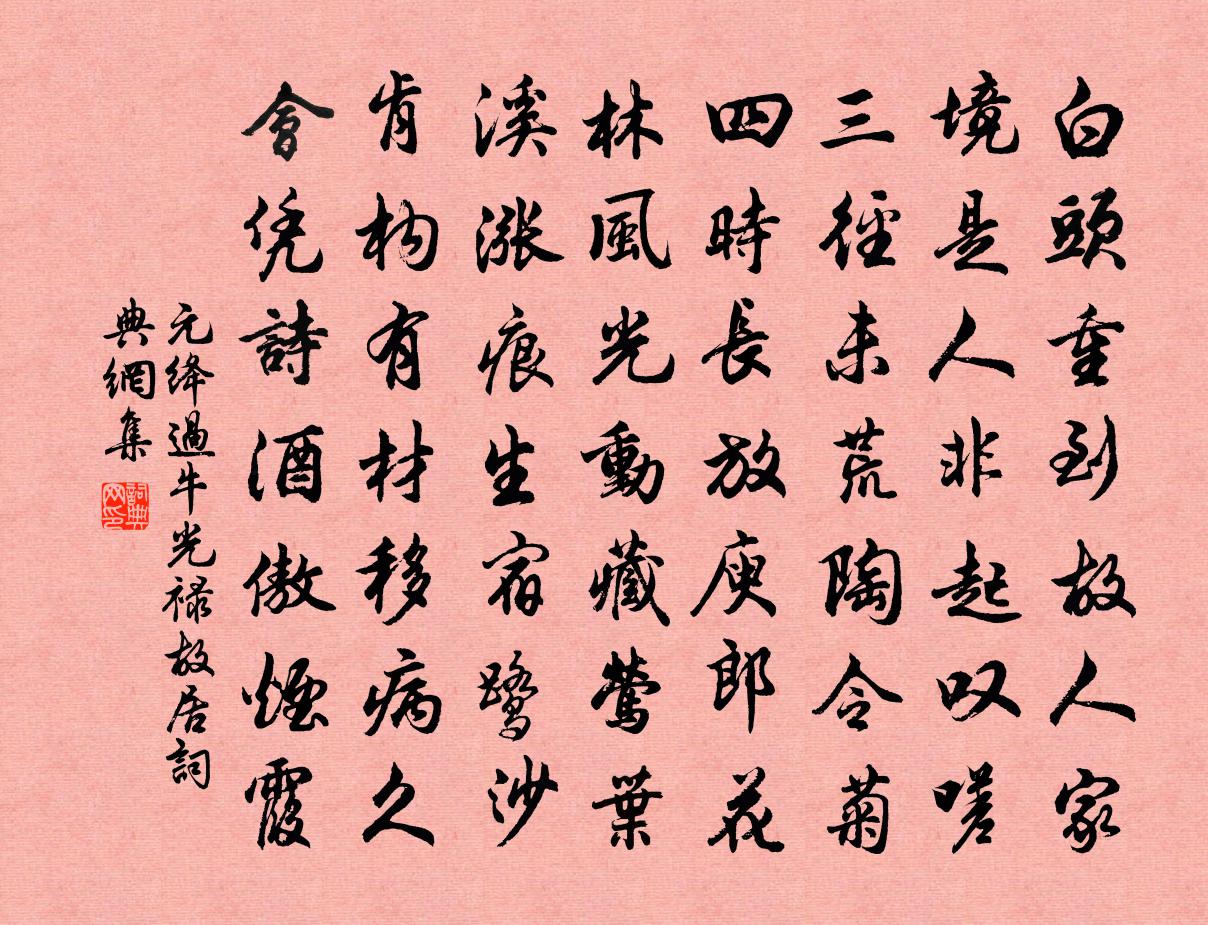 白頭重到故人家
境是人非起叹嗟
三徑未荒陶令菊
四時長放庾郎花
林風光動藏鶯葉
溪漲痕生宿鷺沙
肯构有材移病久
會凭詩酒傲煙霞
元絳過牛光祿故居詞
典網集
詞典
网印